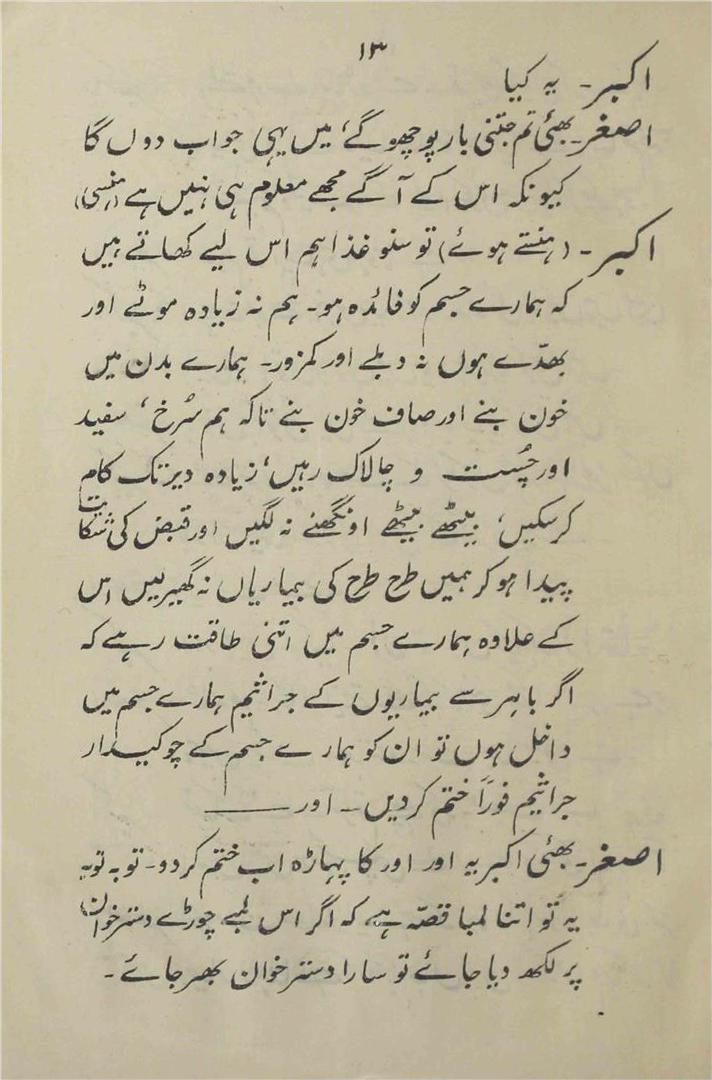 ۱۳
اکبر۔ یہ کیا
اصغر۔ بھئی تم جتنی بار پوچھو گے، میں یہی جواب دوں گا
کیونکہ اس کے آگے مجھے معلوم ہی نہیں ہے (ہنسی)
اکبر۔ (ہنستے ہوئے) تو سنو غذا ہم اس لیے کھاتے ہیں
کہ ہمارے جسم کو فائدہ ہو۔ ہم نہ زیادہ موٹے اور
بھدّے ہوں نہ دبلے اور کمزور۔ ہمارے بدن میں
خون بنے اور صاف خون بنے تاکہ ہم سُرخ، سفید
اور چُست و چالاک رہیں، زیادہ دیر تک کام
کرسکیں، بیٹھے بیٹھے اونگھنے نہ لگیں اور قبض کی شکایت
پیدا ہو کر ہمیں طرح طرح کی بیماریاں نہ گھیریں اس
کے علاوہ ہمارے جسم میں اتنی طاقت رہے کہ
اگر باہر سے بیماریوں کے جراثیم ہمارے جسم میں
داخل ہوں تو ان کو ہمارے جسم کے چوکیدار
جراثیم فوراً ختم کردیں۔ اور ——
اصغر۔ بھئی اکبر یہ اور اور کا پہاڑہ اب ختم کردو۔ توبہ توبہ
یہ تو اتنا لمبا قصّہ ہے کہ اگر اس لمبے چوڑے دسترخوان
پر لکھ دیا جائے تو سارا دسترخوان بھر جائے۔